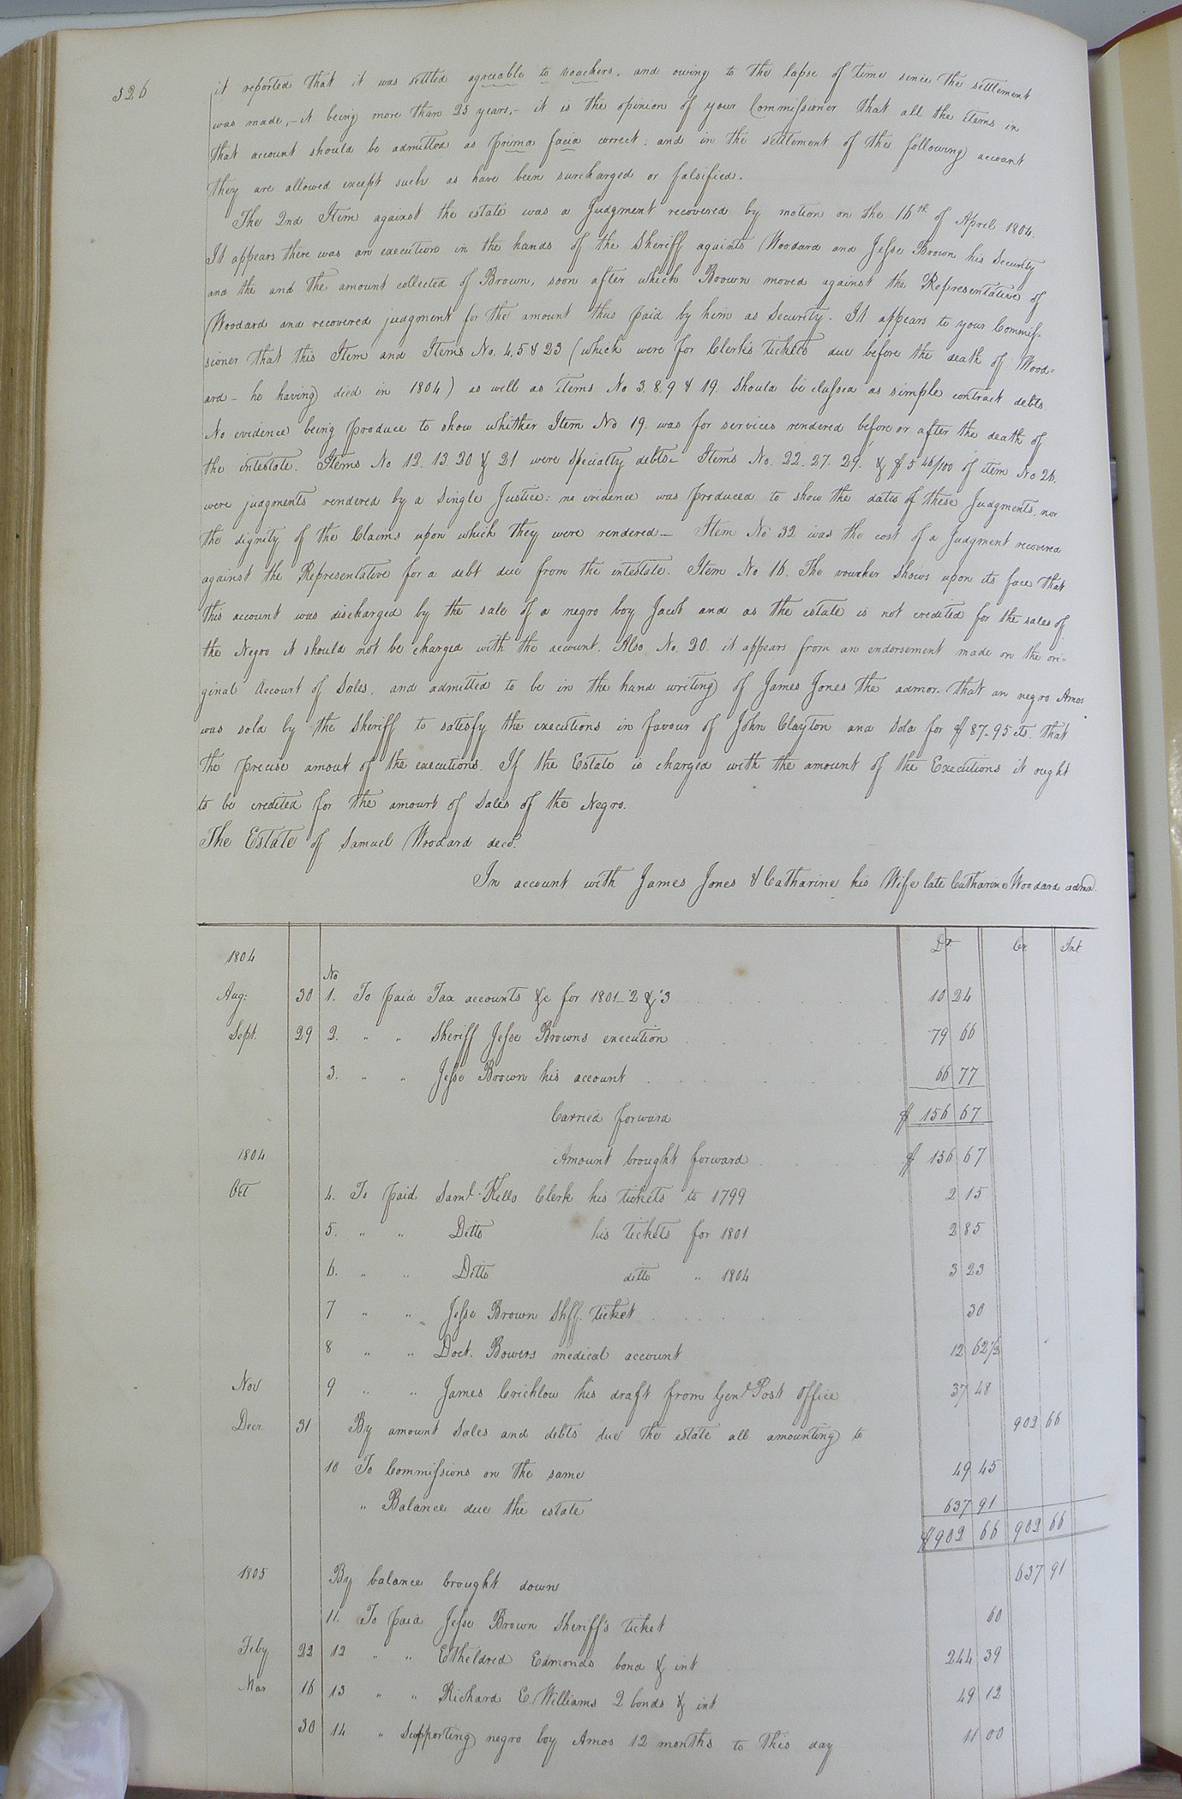 326
it reported that it was settled agreeable to vouchers, and owing to the lapse of time since the settlement
was made, - it being more than 25 years, - it is the opinion of your Commissioner that all the items in
that account should be admitted as prima facia correct, and in the settlement of the following account
they are allowed except such as have been surcharged or falsified.
The 2nd Item against the estate was a Judgment recovered by motion on the 16th of April 1804.
It appears there was an execution in the hands of the Sheriff againts Woodard and Jesse Brown his Security
and the and the amount collected of Brown, soon after which Brown moved against the Representative of
Woodard and recovered judgment for the amount thus paid by him as Security. It appears to your Commis-
sioner that this Item and Items No. 4, 5 & 23 (which were for Clerk's tickets due before the death of Wood=
ard - he having died in 1804) as well as items No 3. 8. 9 & 19. should be classed as simple contract debts.
No evidence being produce to show whither Item No 19. was for services rendered before or after the death of
the intestate. Items No 12. 13. 20 & 21 were Specialty debts - Items No. 22. 27. 29. & $5 46/100 of item No 26.
were judgments rendered by a Single Justice: no evidence was produced to show the dates of these Judgments, nor
the dignity of the Claims upon which they were rendered - Item No 32 was the cost of a Judgment recovered
against the Representative for a debt due from the intestate. Item No 16. The voucher shows upon its face that
this account was discharged by the sale of a negro boy Jacob and as the estate is not credited for the sales of
the Negro it should not be charged with the account. Also No. 20. it appears from an endorsement made on the ori=
ginal Account of Sales, and admitted to be in the hand writing of James Jones the admor. that an negro Amos
was sold by the Sheriff to satisfy the executions in favour of John Clayton and sold for $87-95 cts that
the precise amout of the executions. If the Estate is charged with the amount of the Executions it ought
to be credited for the amount of Sales of the Negro.
The Estate of Samuel Woodard decd.
In account with James Jones & Catharine his Wife late Catharine Woodard admx.
Dr Cr Int
1804
No
Aug: 30 1. To paid Tax accounts &c for 1801- 2 & 3 10 24
Sept. 29 2. " " Sheriff Jesse Browns execution 79 66
3. " " Jesse Brown his account 66 77
Carried forward $ 156 67
1804 Amount brought forward $ 156 67
Oct 4. To paid Saml. Kello Clerk his tickets to 1799 2 15
5. " " Ditto his tickets for 1801 2 85
6. " " Ditto ditto " 1804 3 23
7 " " Jesse Brown Shff. ticket 30
8 " " Doct. Bowers medical account 12 62 1/2
Nov 9 " " James Cricklow his draft from Genl. Post Office 37 48
Decr. 31 By amount sales and debts due the estate all amounting to 902 66
10 To Commissions on the same 49 45
" Balance due the estate 637 91
$902 66 902 66
1805 By balance brought down 637 91
11. To paid Jesse Brown Sheriff's ticket 60
Feby 22 12 " " Etheldred Edmonds bond & int 244 39
Mar 16 13 " " Richard E. Williams 2 bonds & int 49 12
30 14 " Supporting negro boy Amos 12 months to this day 11 00